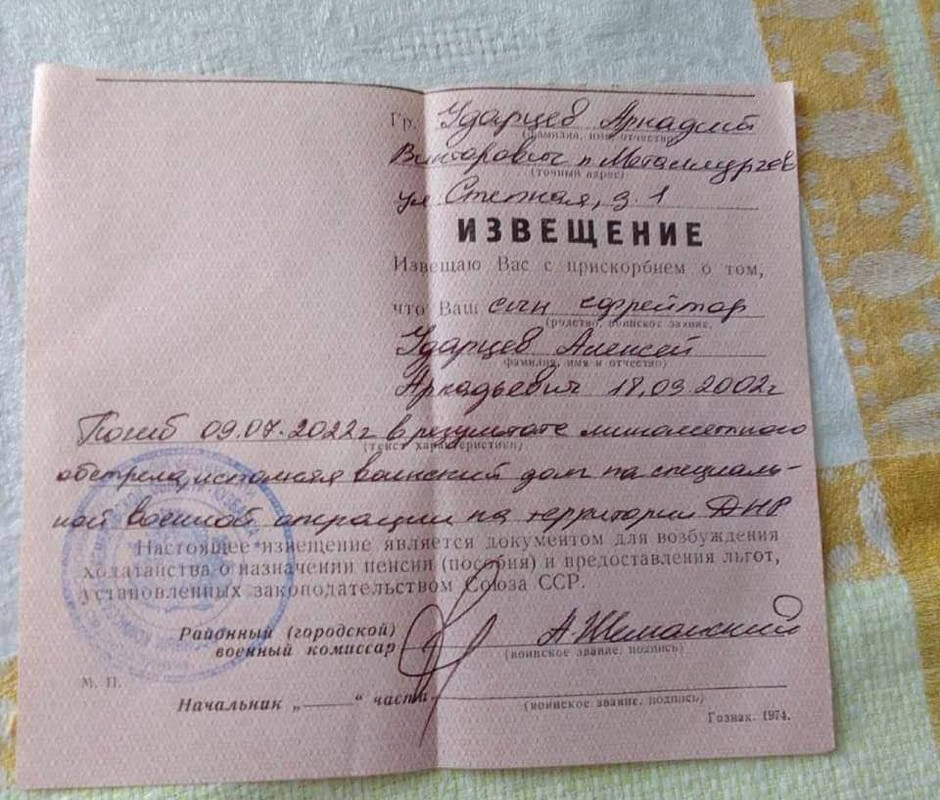 Гр. Ударцев Аркадий
(фамилия, имя, отчество)
Викторович п. Металлургов
(точный адрес)
ул Степная, д. 1
ИЗВЕЩЕНИЕ
Извещаю Вас с прискорбием о том,
что Ваш сын ефрейтор
(родство, воинское звание,
Ударцев Алексей
фамилия, имя и отчество)
Аркадьевич 18.03.2002г
Погиб 09.07.2022г в результате минометного
(текст характеристики)
обстрела, исполняя воинский долг на специаль-
ной военной операции на территории ДНР
Настоящее извещение является документом для возбуждения
ходатайства о назначении пенсии (пособия) и предоставления льгот,
установленных законодательством Союза ССР.
Районный (городской)
военный комиссар А.
(воинское звание, подпись)
М. П.
Начальник „ “ части
(воинское звание, подпись)
Гознак. 1974.